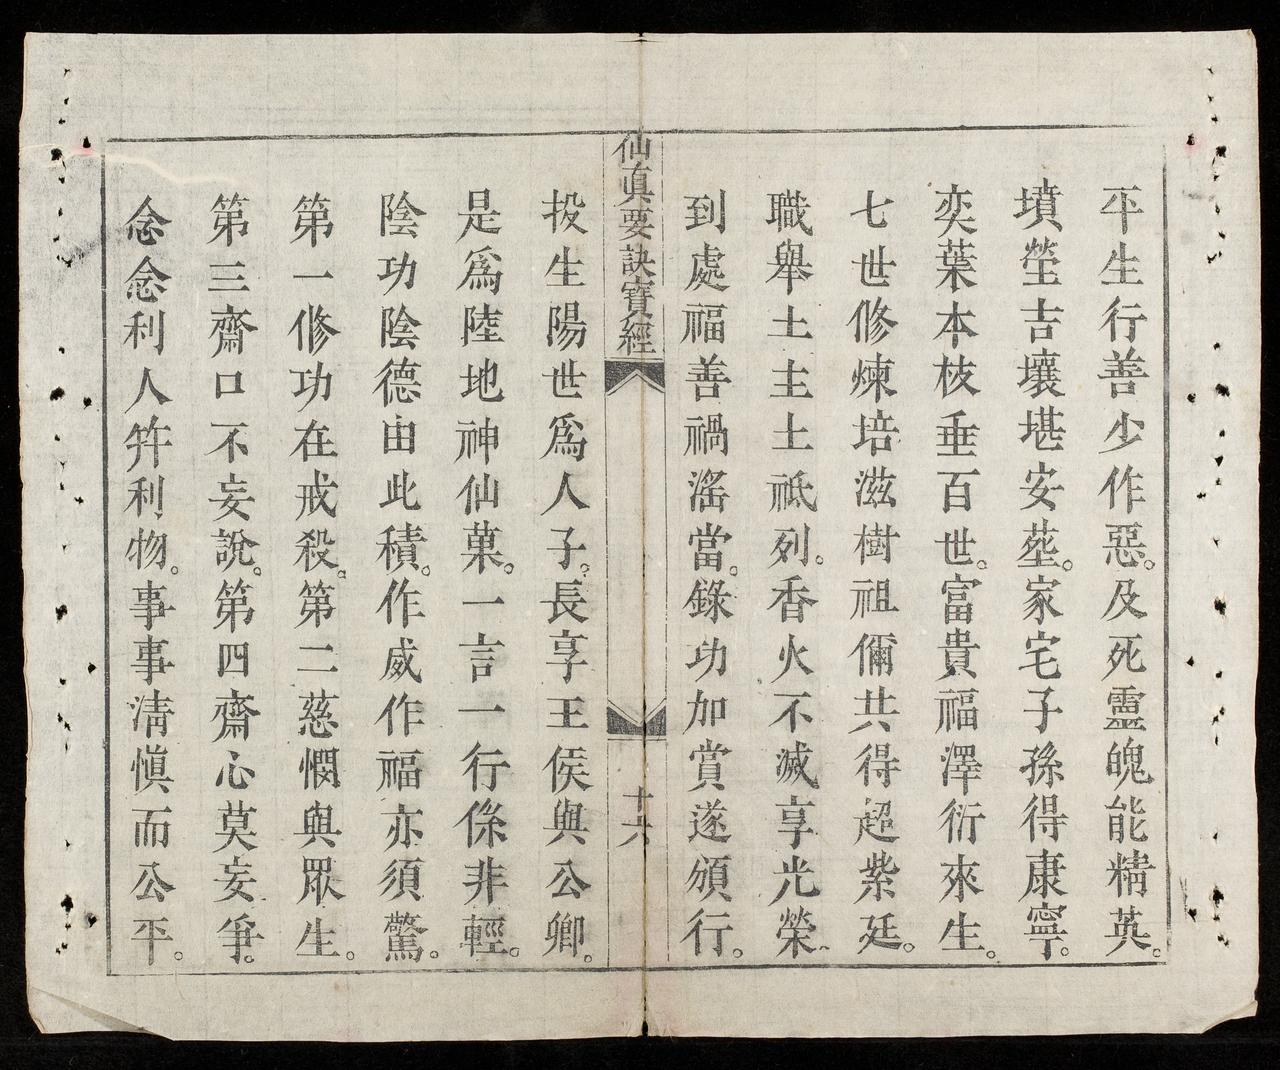 平生行善少作惡。及死靈魄能精英。
墳塋吉壤堪安塟。家宅子孫得康寧。
奕葉本枝垂百世。富貴福澤衍來生。
七世修煉培滋樹祖儞共得超紫廷。
職舉土主土祗列。香火不滅享光榮。
到處福善禍滛當。錄功加賞遂頒行。
仙眞要訣寶經
十六
投生陽世爲人子。長享王侯與公卿。
是爲陸地神仙菓。一言一行係非輕。
陰功陰德由此積。作威作福亦須驚。
第一修功在戒殺。第二慈憫與眾生。
第三齋口不妄說。第四齋心莫妄爭。
念念利人幷利物。事事淸愼而公平。